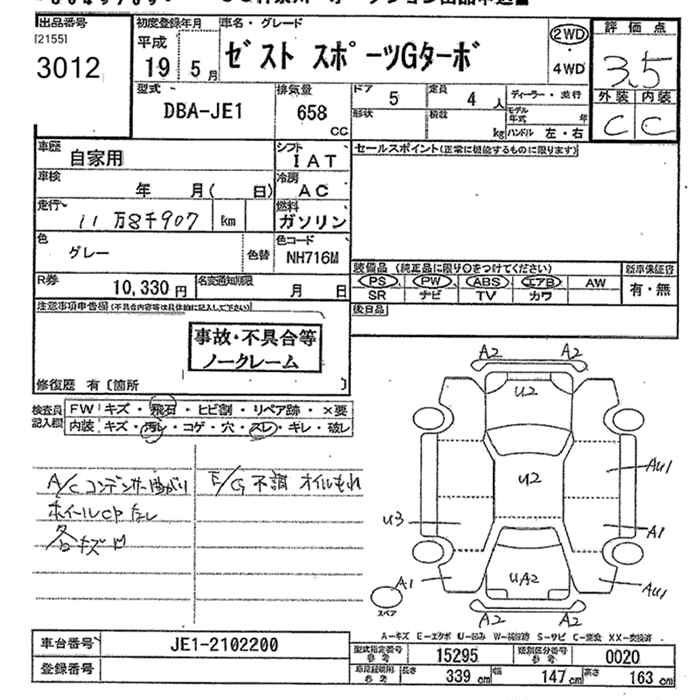 出品番号 初度登録年月 車名・グレード 評価点
[2155] 平成 ゼスト スポーツGターボ 2WD 3.5
3012 19 5月 4WD
型式 排気量 ドア 5 定員 4人 ディーラー・並行 外装 内装
DBA-JE1 658 CC 形状 積載 kg モデル年式 年 C C
ハンドル 左・右
車歴 自家用 シフト IAT セールスポイント(正常に機能するものに限ります)
車検 年 月( 日) 冷房 AC
走行 11万8千907 km 燃料 ガソリン
色 グレー 色替 色コード NH716M
装備品(純正品に限り○をつけてください) 新車保証書
R券 10,330円 名変通知期限 月 日 PS PW ABS エアB AW 有・無
SR ナビ TV カワ
注意事項申告欄(不具合内容等は具体的に記入して下さい) 後日品
事故・不具合等
ノークレーム
修復歴 有〔箇所 〕
検査員記入欄 FW キズ・飛石・ヒビ割・リペア跡・×要
内装 キズ・汚レ・コゲ・穴・スレ・キレ・破レ
A/Cコンデンサー曲がり E/G不調 オイルもれ
ホイールCPなし
各キズ凹
A2 A2
U2
U2 AU1
U3 A1
A1 UA2 AU1
スペア
A2 A2
A-キズ E-エクボ U-凹み W-補修跡 S-サビ C-腐食 XX-交換済
車台番号 JE1-2102200 型式指定番号 参考 15295 類別区分番号 参考 0020
登録番号 参考 長さ 339cm 幅 147cm 高さ 163cm